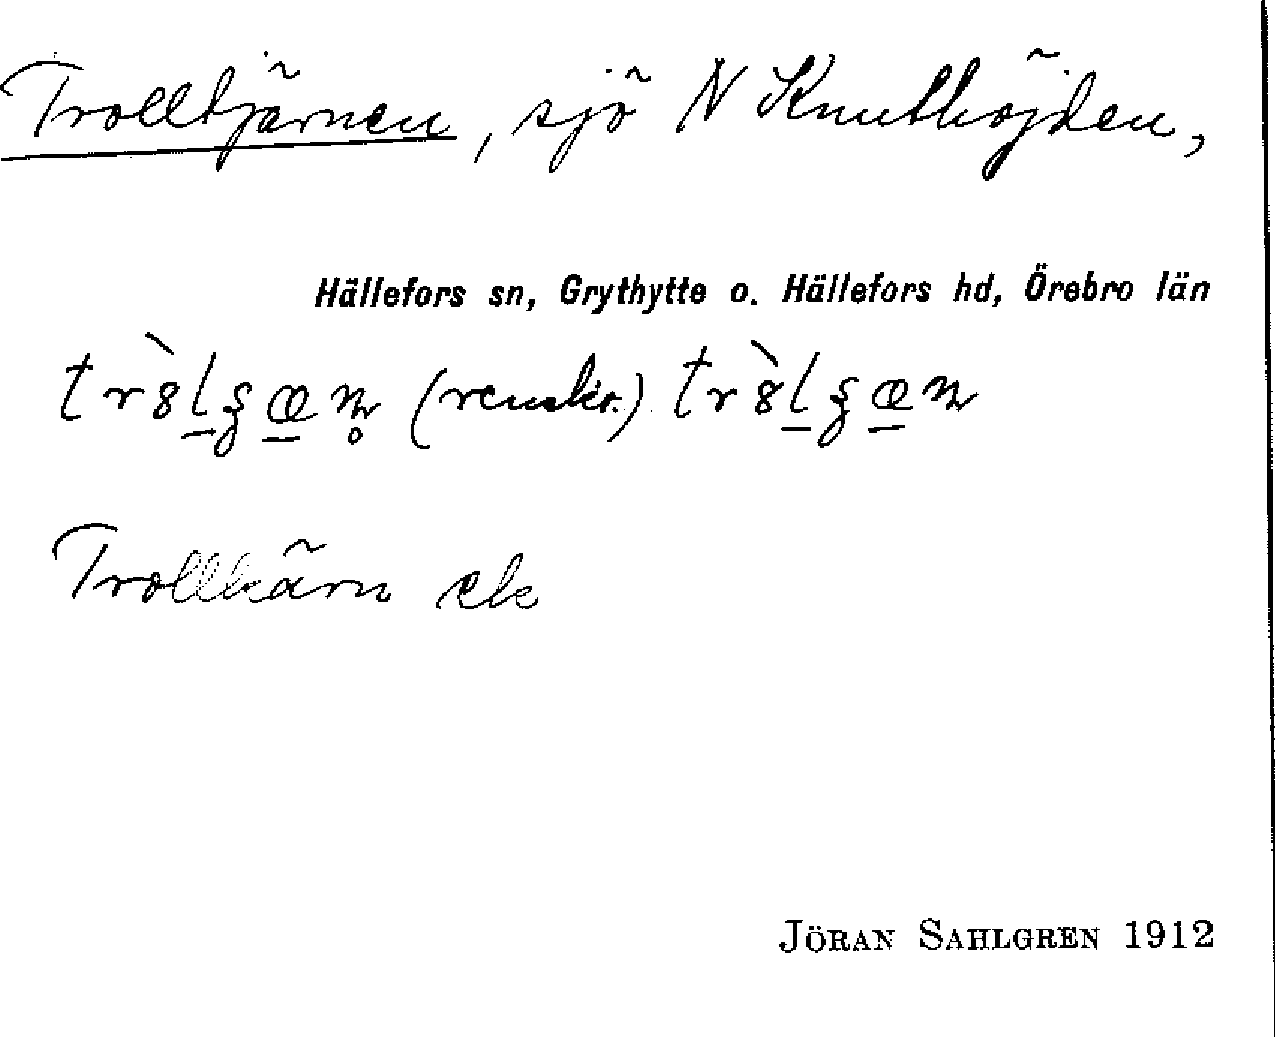 Trolltjärnen, sjö N Knuthöjden,
Hällefors sn, Grythytte o. Hällefors hd, Örebro län
(renskr.)
Trollkärn ek
JÖRAN SAHLGREN 1912